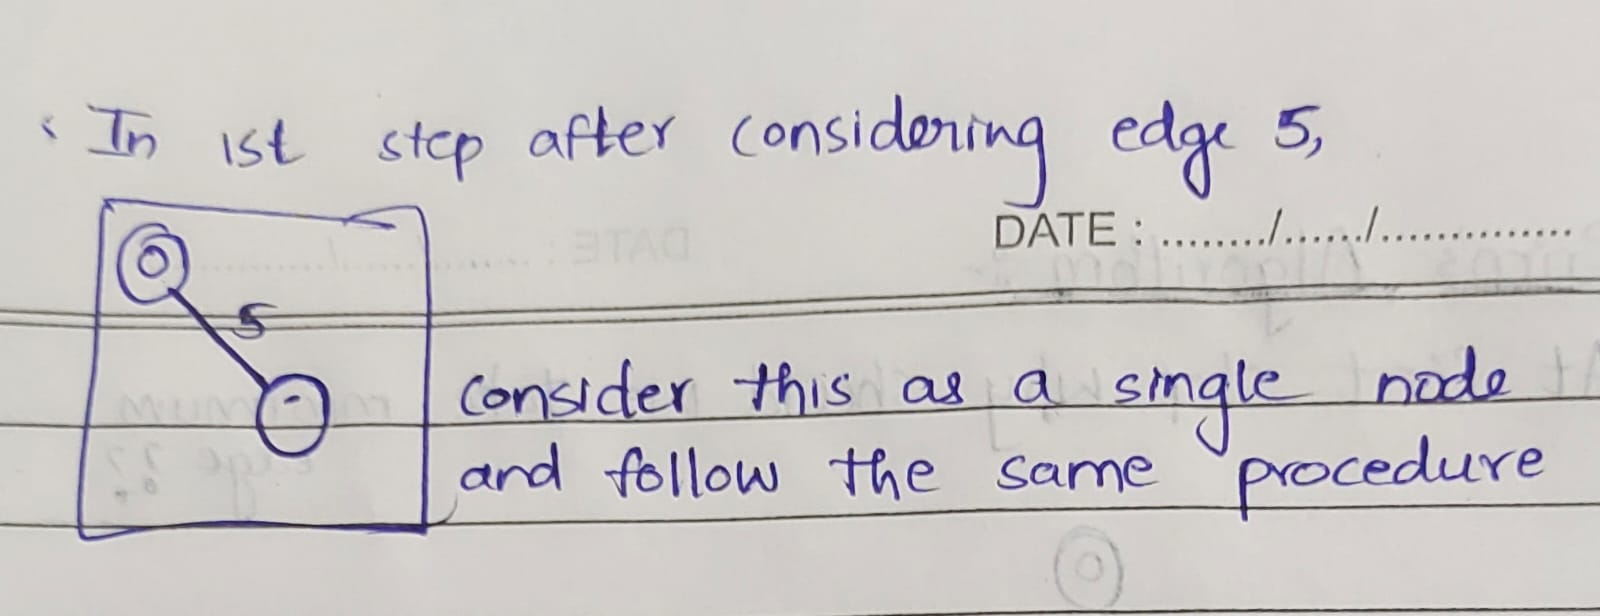 In 1st step after considering edge 5,
DATE : ......../....../..............
0
5
-
consider this as a single node
and follow the same procedure